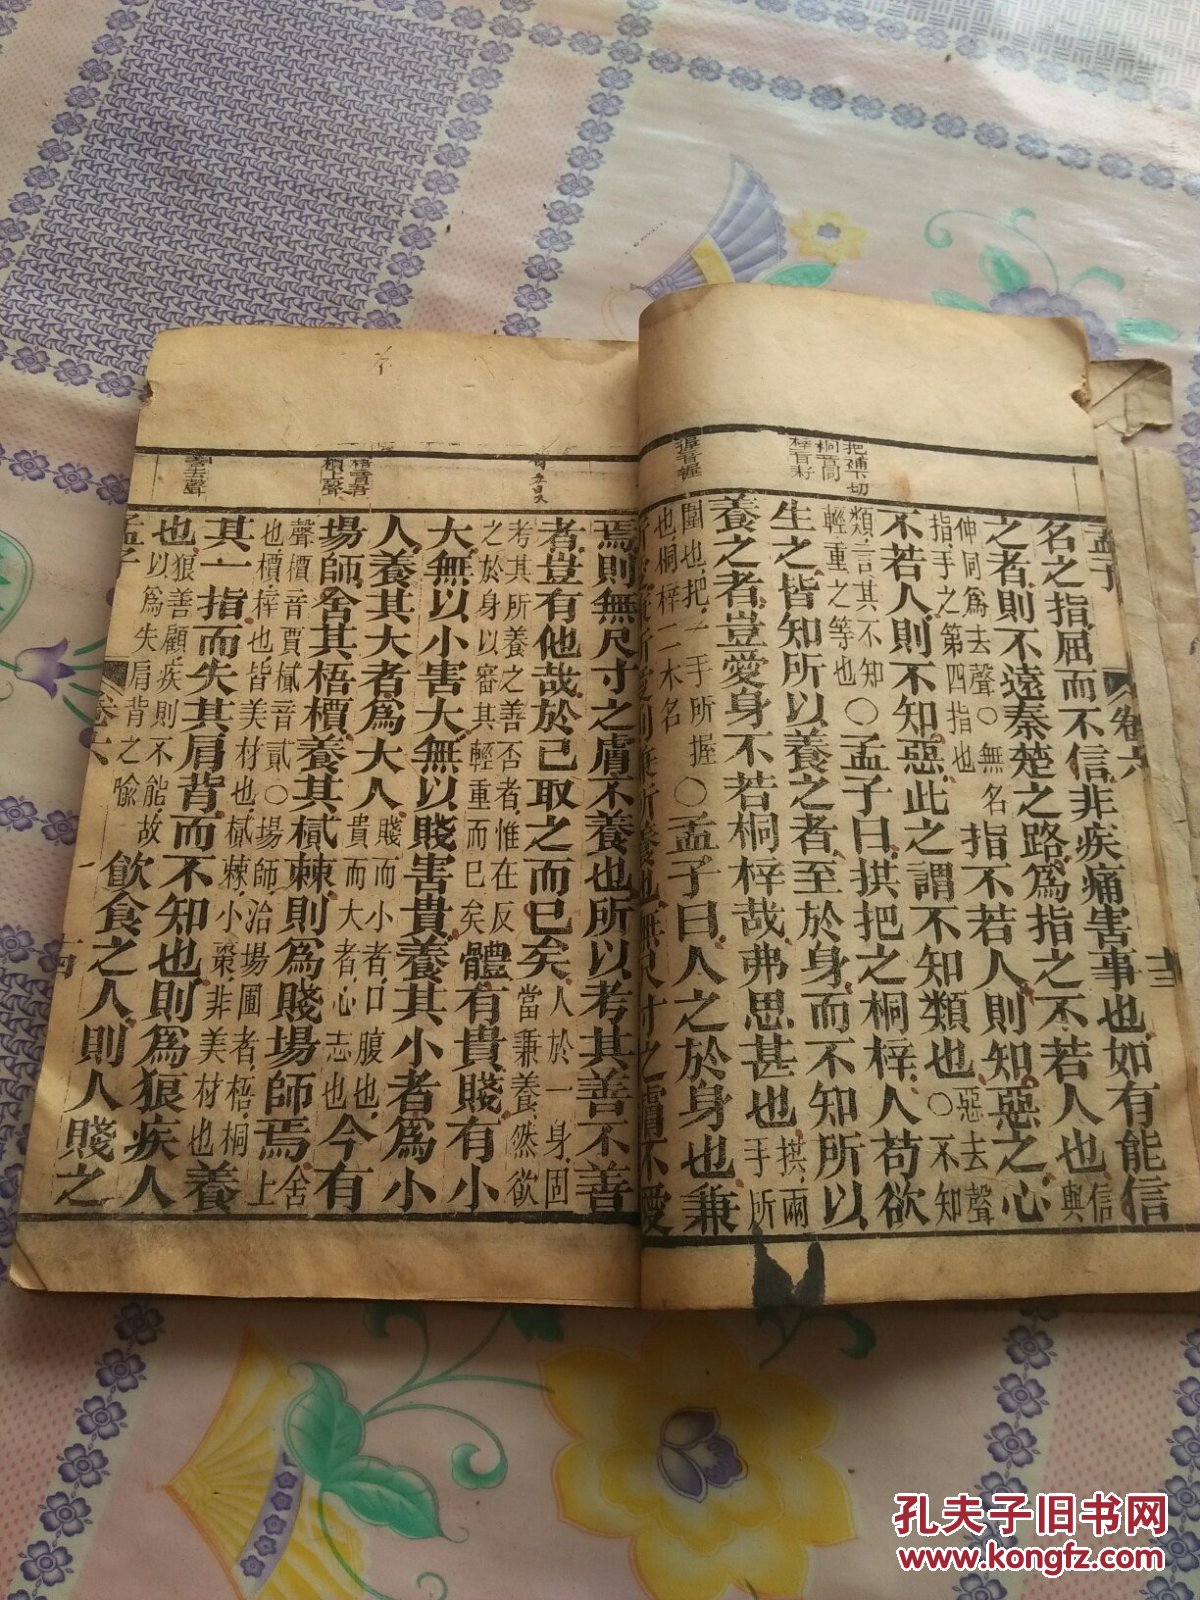 把補下切
桐音同
梓音籽
握音握
孟子
卷六
十三
名之指屈而不信非疾痛害事也如有能信
之者則不遠秦楚之路為指之不若人也信與
伸同為去聲○無名指手之第四指也
指不若人則知惡之心
不若人則不知惡此之謂不知類也惡去聲○不知
類言其不知輕重之等也
○孟子曰拱把之桐梓人苟欲
生之皆知所以養之者至於身而不知所以
養之者豈愛身不若桐梓哉弗思甚也拱兩手所
圍也把一手所握也桐梓二木名
○孟子曰人之於身也兼
所愛則兼所養也無尺寸之膚不愛
焉則無尺寸之膚不養也所以考其善不善
者豈有他哉於己取之而已矣人於一身固當兼養然欲
考其所養之善否者惟在反之於身以審其輕重而已矣
體有貴賤有小
大無以小害大無以賤害貴養其小者為小
人養其大者為大人賤而小者口腹也貴而大者心志也
今有
場師舍其梧檟養其樲棘則為賤場師焉舍上
聲檟音賈樲音貳○場師治場圃者梧桐也檟梓也皆美材也樲棘小棗非美材也
養
其一指而失其肩背而不知也則為狼疾人
也狼善顧疾則不能故以為失肩背之喻
飲食之人則人賤之
梧音吾
檟上聲
孟子
卷六
十四
孔夫子旧书网
www.kongfz.com